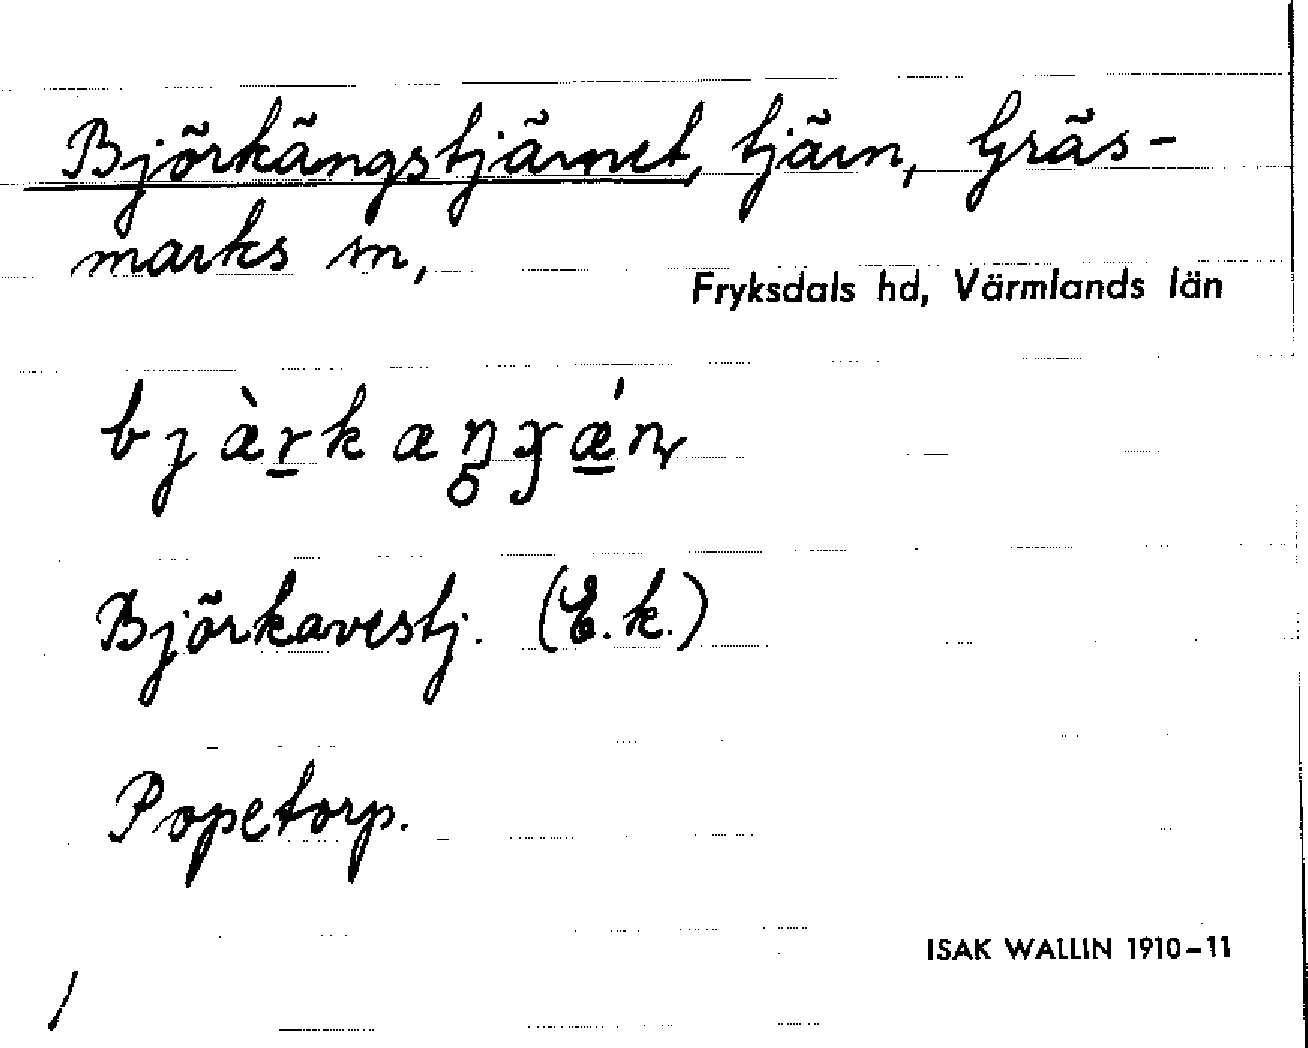 Björkängstjärnet, tjärn, Gräs-
marks sn,
Fryksdals hd, Värmlands län
Björkavestj. (E.k.)
Popetorp.
ISAK WALLIN 1910–11
/